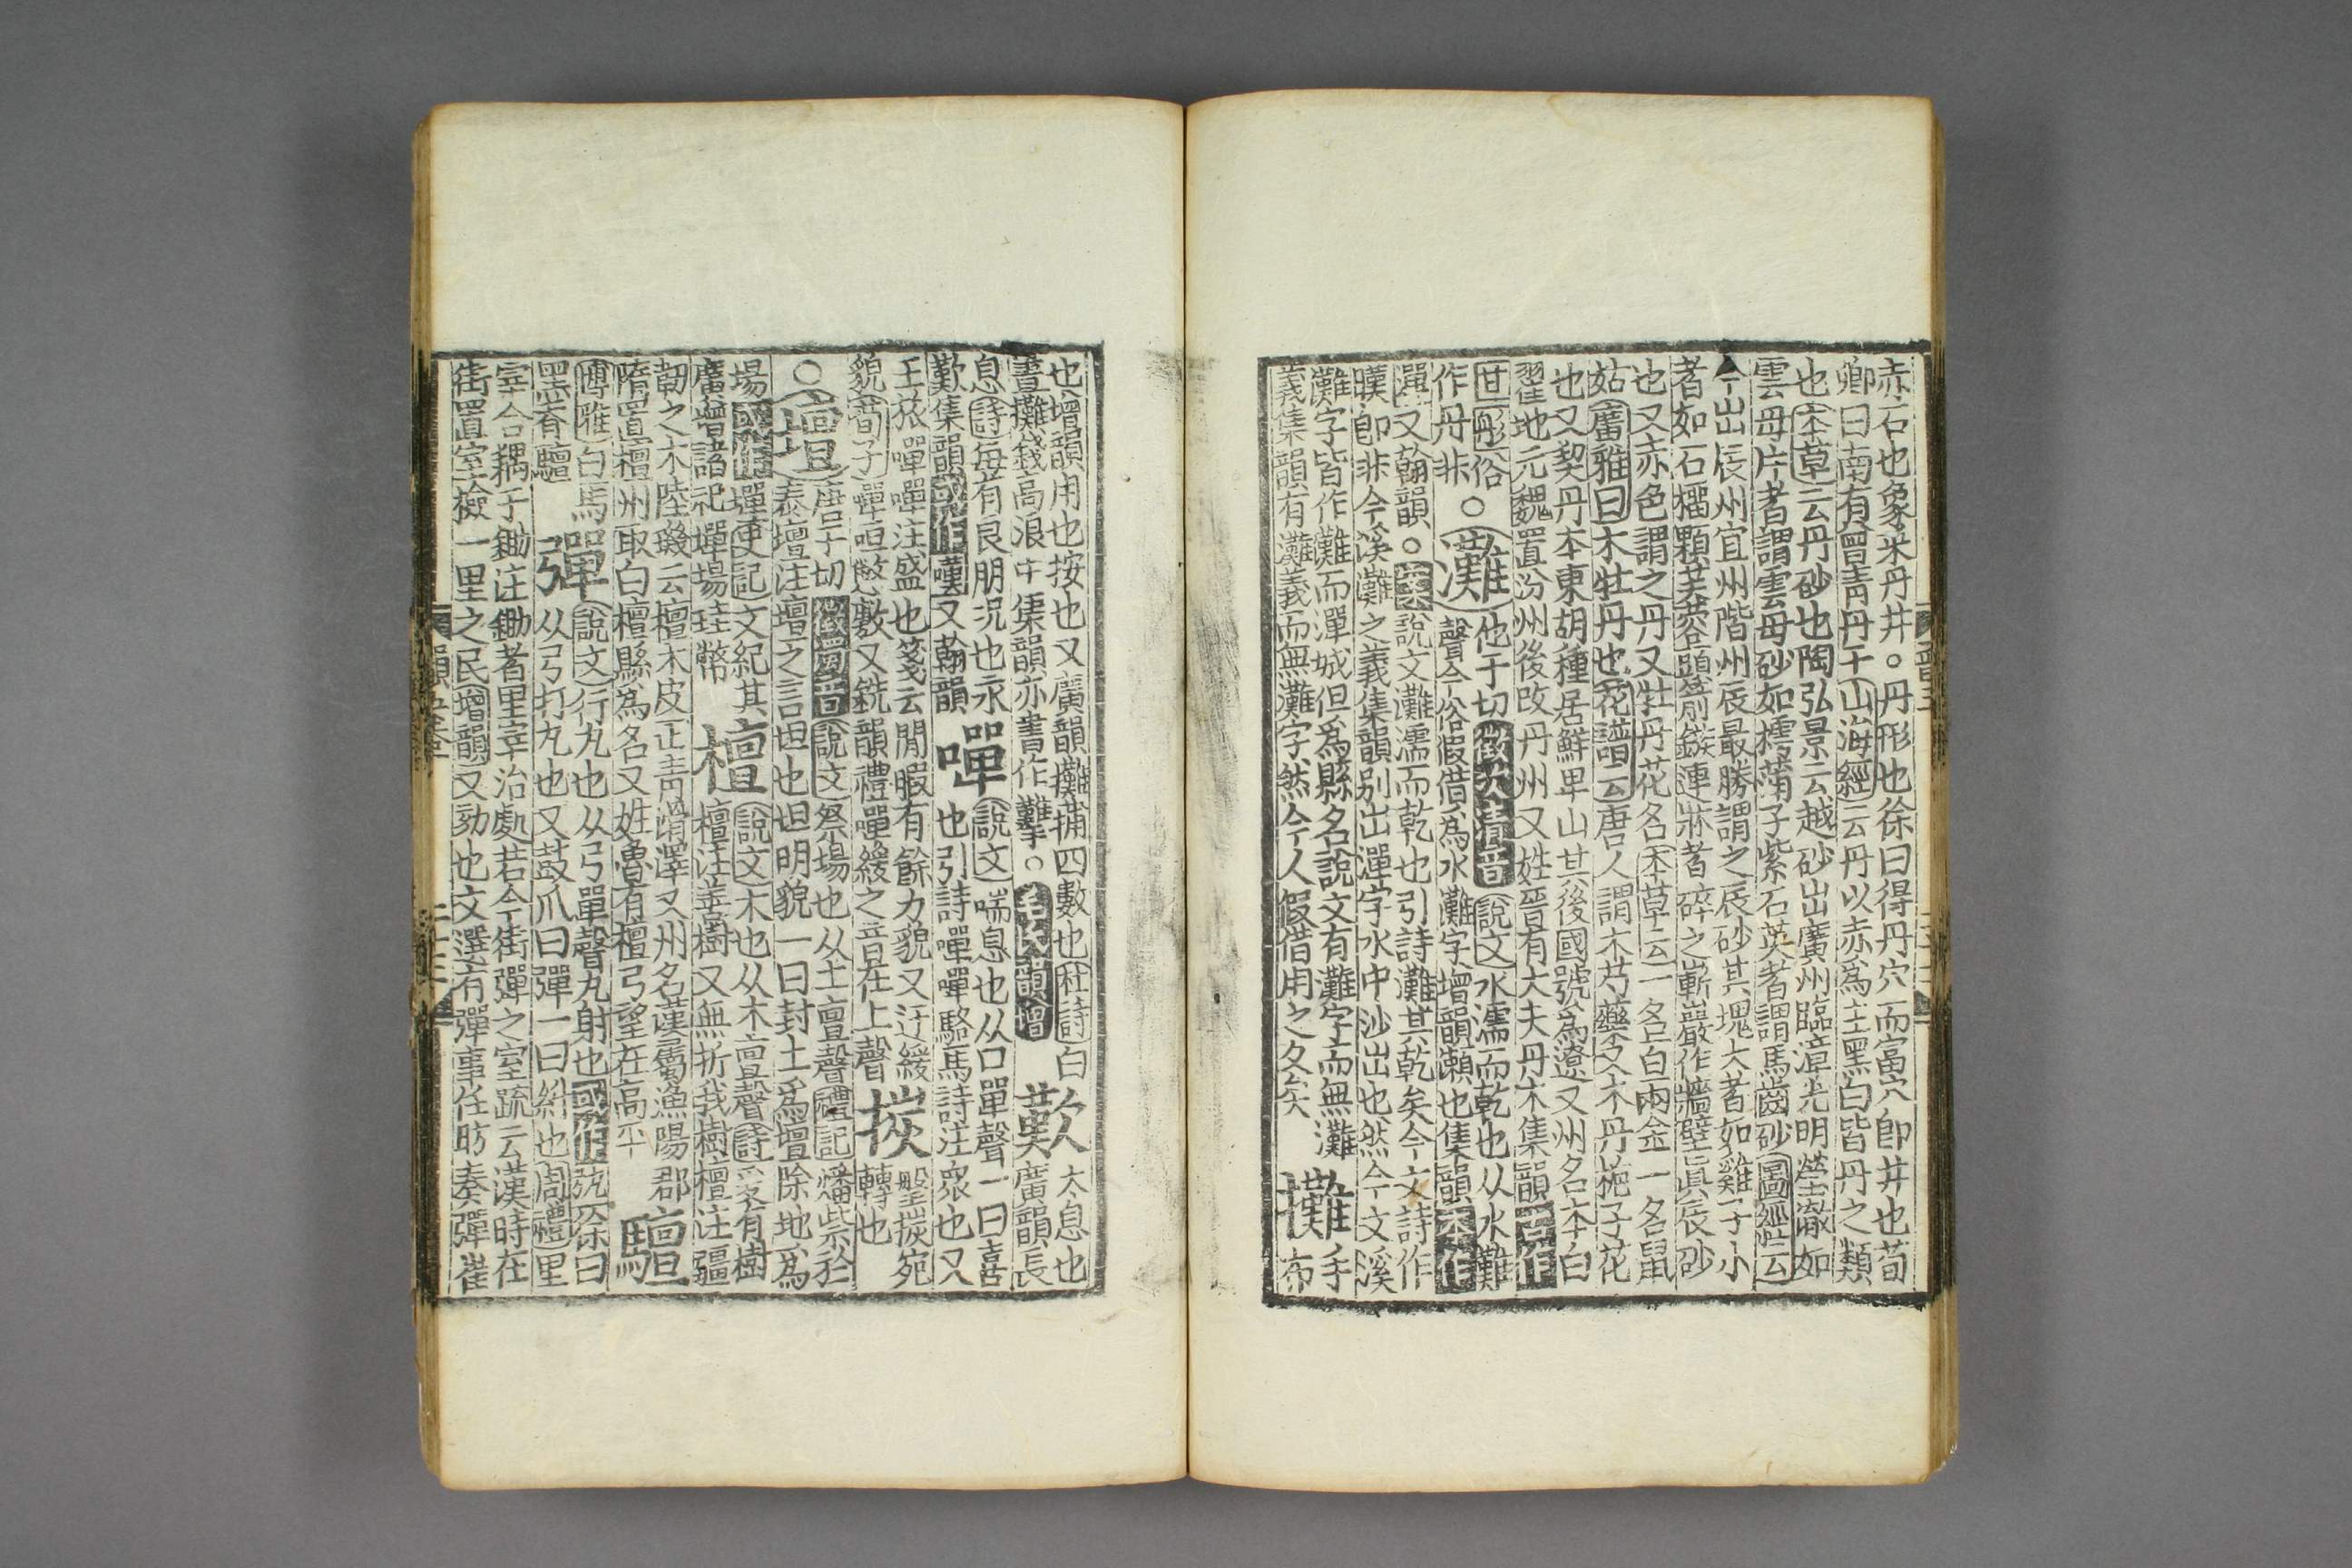 赤石也象采丹井○丹形也徐曰得丹穴而富穴卽井也荀
卿曰南有曾青丹干山海經云丹以赤爲主黑白皆丹之類
也本草云丹砂也陶弘景云越砂出廣州臨漳光明瑩澈如
雲母片者謂雲母砂如樗蒲子紫石英者謂馬齒砂圖經云
今出辰州宜州階州辰最勝謂之辰砂其塊大者如雞子小
者如石榴顆芙蓉頭箭鏃連牀者碎之嶄巖作牆壁眞辰砂
也又赤色謂之丹又牡丹花名本草云一名百兩金一名鼠
姑廣雅曰木牡丹也花譜云唐人謂木芍藥又木丹梔子花
也又契丹本東胡種居鮮卑山其後國號爲遼又州名本白
翟地元魏置汾州後改丹州又姓晉有大夫丹木集韻
世彤俗作丹非○灘他于切徵次清音說文水濡而乾也从水難
聲今俗假借爲水灘字增韻瀬也集韻本作
灘又翰韻○說文灘濡而乾也引詩灘其乾矣今文詩作
暵卽非今溪灘之義集韻別出潬字水中沙出也然今文溪
灘字皆作灘而潬城但爲縣名說文有灘字而無灘
義集韻有灘義而無灘字然今人假借用之久矣 攤手布
也增韻用也按也又廣韻攤蒱四數也杜詩白
晝攤錢高浪中集韻亦書作○韻增 歎太息也廣韻長
息詩每有良朋況也永歎集韻或作嘆又翰韻 嘽說文喘息也从口單聲一曰喜
也引詩嘽嘽駱馬詩注衆也又
王旅嘽嘽注盛也箋云閒暇有餘力貌又迂緩
貌荀子嘽咺憋敷又銑韻禮嘽緩之音在上聲 㨏㨏宛轉也
○壇唐于切徵濁音說文祭場也从土亶聲禮記燔柴於
泰壇注壇之言坦也坦明貌一曰封土爲壇除地爲
場或作墠史記文紀其廣增諸祀墠場珪幣 檀說文木也从木亶聲詩爰有樹
檀注善樹又無折我樹檀注彊
韌之木陸璣云檀木皮正青滑澤又州名漢屬漁陽郡
隋置檀州取白檀縣爲名又姓魯有檀弓望在高平 驙
博雅白馬黑脊驙 彈說文行丸也从弓單聲丸射也或作徐曰
从弓打丸也又鼓爪曰彈一曰糾也周禮里
宰合耦于鋤注鋤者里宰治處若今街彈之室疏云漢時在
街置室檢一里之民增韻又劾也文選有彈事任昉奏彈崔